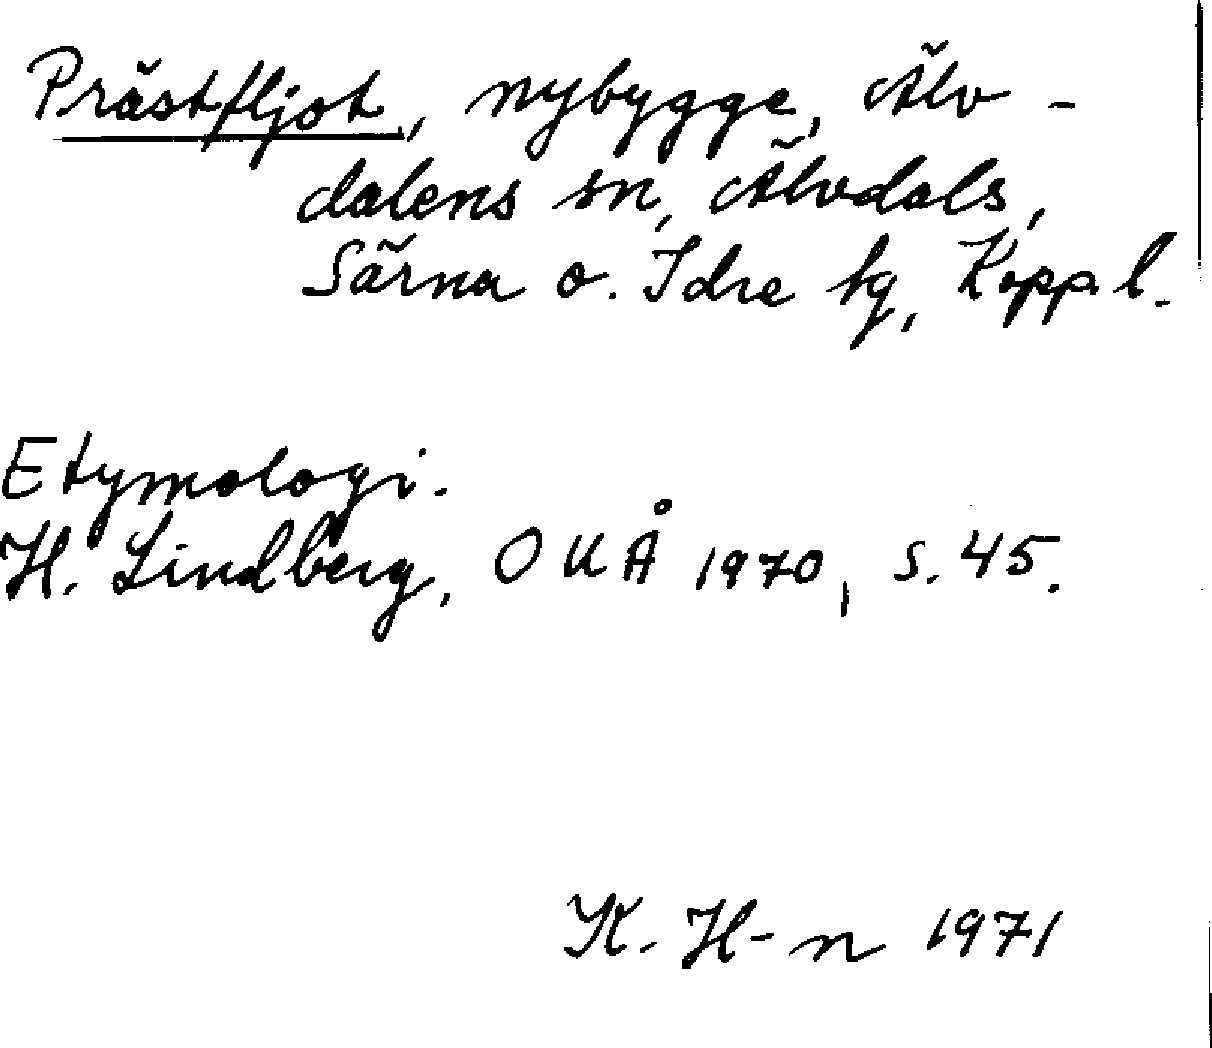 Prästfljot, nybygge, Älv-
dalens sn, Älvdals,
Särna o. Idre tg, Kopp l.
Etymologi.
H. Lindberg, OUÅ 1970, s. 45.
K. H-n 1971